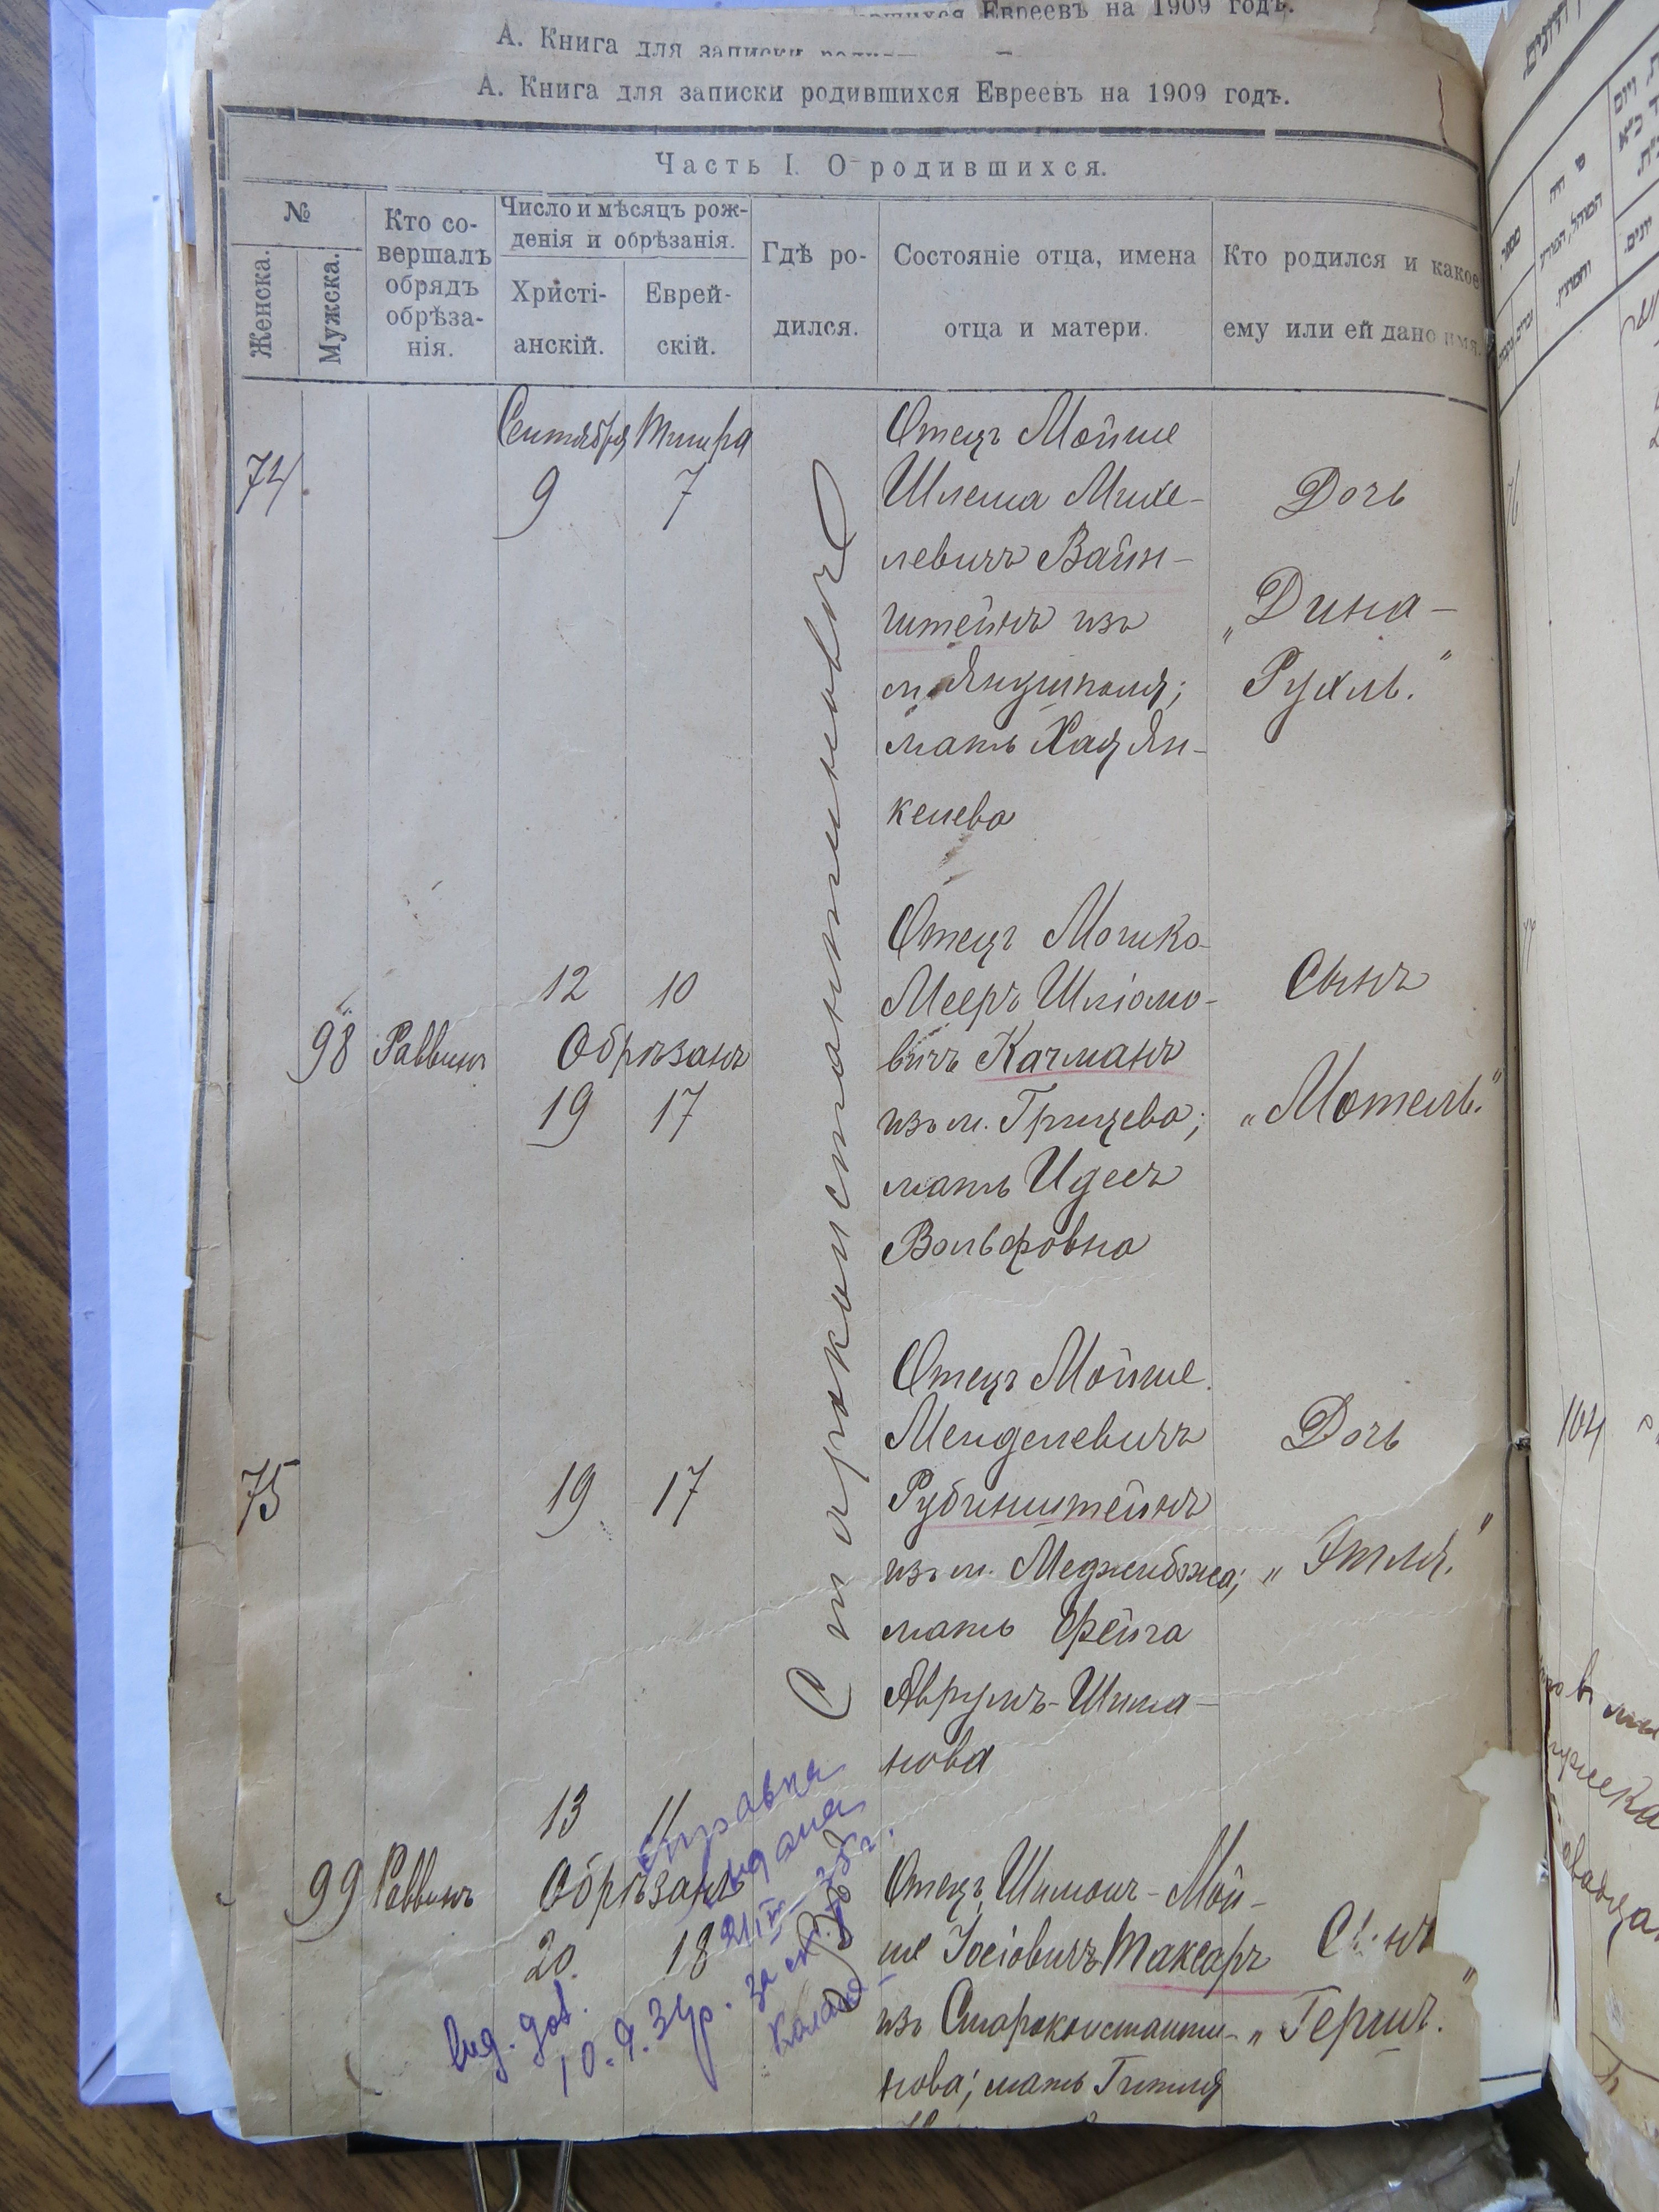 Евреевъ на 1909 годъ.
А. Книга для записки
А. Книга для записки родившихся Евреевъ на 1909 годъ.
Часть I. О родившихся.
№
Женска.
Мужска.
Кто со-
вершалъ
обрядъ
обрѣза-
нія.
Число и мѣсяцъ рож-
денія и обрѣзанія.
Христі-
анскій.
Еврей-
скій.
Гдѣ ро-
дился.
Состояніе отца, имена
отца и матери.
Кто родился и какое
ему или ей дано имя.
Сентября Тишра
74 9 7
Староконстантиновъ
Отецъ Мойше
Шлема Михе-
левичъ Вайн-
штейнъ изъ
м. Янушполя;
мать Хая Ян-
келева
Дочь
„Дина-
Рухль."
12 10
98 Раввинъ Обрѣзанъ
19 17
Отецъ Мошко-
Мееръ Шліомо-
вичъ Качманъ
изъ м. Грицева;
мать Идесъ
Вольфовна
Сынъ
„Мотель."
75 19 17
Отецъ Мойше
Менделевичъ
Рубинштейнъ
изъ м. Меджибожа;
мать Фейга
Аврумъ-Шима-
нова
Дочь
„Этля."
13 11
99 Раввинъ Обрѣзанъ
20. 18
Отецъ Шимонъ-Мой-
ше Іосіовичъ Таксаръ
изъ Староконстанти-
нова; мать Гитля
Сынъ
„Гершъ."
справка
выдана
Вид. дов.
10.9.34р.
104